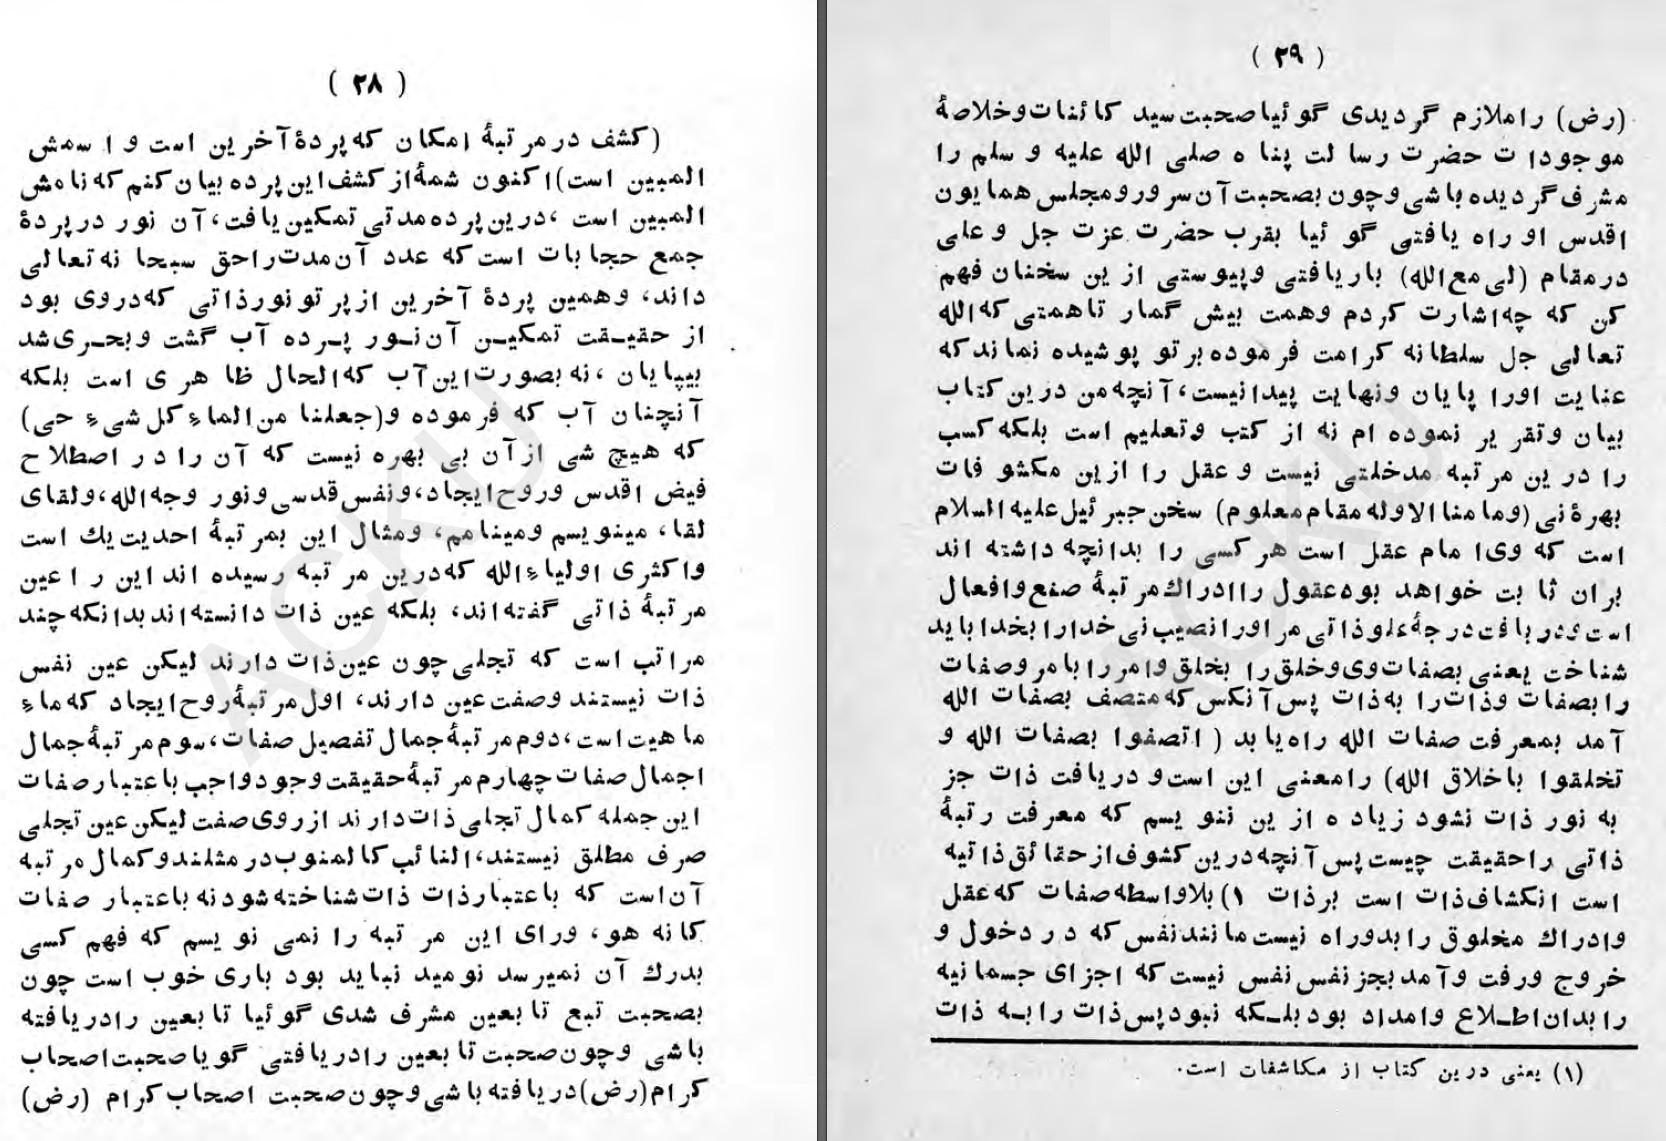 ( ۲۸ )
(کشف در مرتبهٔ امکان که پردهٔ آخرین است و اسمش
المبین است) اکنون شمهٔ از کشف این پرده بیان کنم که نامش
المبین است ، درین پرده مدتی تمکین یافت، آن نور در پردهٔ
جمع حجابات است که عدد آن مدت را حق سبحانه تعالی
داند، و همین پردهٔ آخرین از پرتو نور ذاتی که در وی بود
از حقیقت تمکین آن نور پرده آب گشت و بحری شد
بیپایان ، نه بصورت این آب که الحال ظاهری است بلکه
آنچنان آب که فرموده و(جعلنا من الماء کل شیء حی)
که هیچ شی از آن بی بهره نیست که آن را در اصطلاح
فیض اقدس و روح ایجاد، و نفس قدسی و نور وجه الله، و لقای
لقا، مینویسم و مینامم، و مثال این بمرتبهٔ احدیت یك است
و اکثری اولیاء الله که درین مرتبه رسیده اند این را عین
مرتبهٔ ذاتی گفته اند، بلکه عین ذات دانسته اند بدانکه چند
مراتب است که تجلی چون عین ذات دارند لیکن عین نفس
ذات نیستند و صفت عین دارند، اول مرتبهٔ روح ایجاد که ماء
ماهیت است، دوم مرتبهٔ جمال تفصیل صفات، سوم مرتبهٔ جمال
اجمال صفات چهارم مرتبهٔ حقیقت وجود واجب با عتبار صفات
این جمله کمال تجلی ذات دارند از روی صفت لیکن عین تجلی
صرف مطلق نیستند، النائب کا لمنوب در مثلند و کمال مرتبه
آن است که باعتبار ذات ذات شناخته شود نه باعتبار صفات
کانه هو، ورای این مرتبه را نمی نویسم که فهم کسی
بدرك آن نمیرسد نومید نباید بود باری خوب است چون
بصحبت تبع تابعین مشرف شدی گوئیا تابعین را دریافته
باشی و چون صحبت تابعین را دریافتی گویا صحبت اصحاب
کرام (رض) دریافته باشی و چون صحبت اصحاب کرام (رض)
( ۲۹ )
(رض) را ملازم گردیدی گوئیا صحبت سید کائنات و خلاصهٔ
موجودات حضرت رسالت پناه صلی الله علیه و سلم را
مشرف گردیده باشی و چون بصحبت آن سرور و مجلس همایون
اقدس او راه یافتی گوئیا بقرب حضرت عزت جل و علی
در مقام (لی مع الله) بار یافتی و پیوستی از ین سخنان فهم
کن که چه اشارت کردم و همت بیش گمار تا همتی که الله
تعالی جل سلطانه کرامت فرموده بر تو پوشیده نماند که
عنایت او را پایان و نهایت پیدا نیست، آنچه من درین کتاب
بیان و تقریر نموده ام نه از کتب و تعلیم است بلکه کسب
را درین مرتبه مدخلتی نیست و عقل را ازین مکشوفات
بهرهٔ نی (وما منا الا وله مقام معلوم) سخن جبرئیل علیه السلام
است که وی امام عقل است هر کسی را بدانچه داشته اند
بران ثابت خواهد بود عقول را ادراك مرتبهٔ صنع و افعال
است و در یافت درجهٔ علو ذاتی مر اورا نصیب نی خدارا بخدا باید
شناخت یعنی بصفات وی و خلق را بخلق وامر را بامر و صفات
را بصفات و ذات را به ذات پس آنکس که متصف بصفات الله
آمد بمعرفت صفات الله راه یابد (اتصفوا بصفات الله و
تخلقوا باخلاق الله) را معنی این است و دریافت ذات جز
به نور ذات نشود زیاده از ین ننویسم که معرفت رتبهٔ
ذاتی را حقیقت چیست پس آنچه درین کشوف از حقائق ذاتیه
است انکشاف ذات است بر ذات ۱) بلا واسطه صفات که عقل
وادراك مخلوق را بدوراه نیست مانند نفس که در دخول و
خروج ورفت وآمد بجز نفس نفس نیست که اجزای جسمانیه
را بدان اطلاع وامداد بود بلکه نبود پس ذات را به ذات
(۱) یعنی درین کتاب از مکاشفات است.
ACKU
ACKU